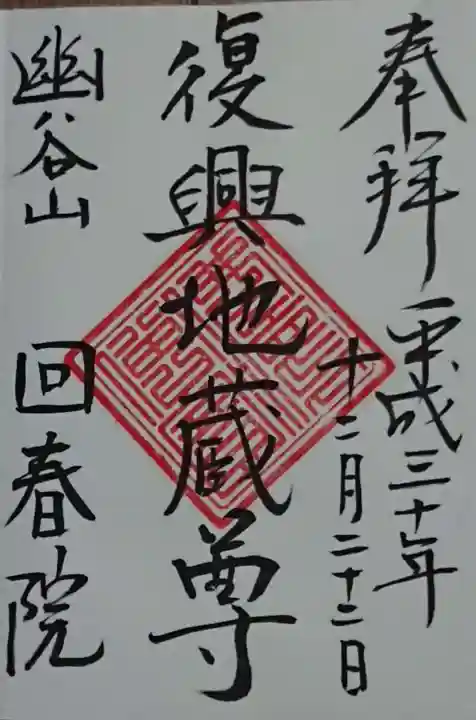 奉拝
平成三十年
十二月二十二日
復興地蔵尊
幽谷山
回春院